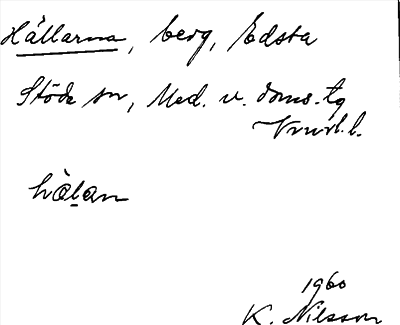 Hällarna, berg, Edsta
Stöde sn, Med. v. doms. tg
Vnorl. l.
hälan
1960
K. Nilsson